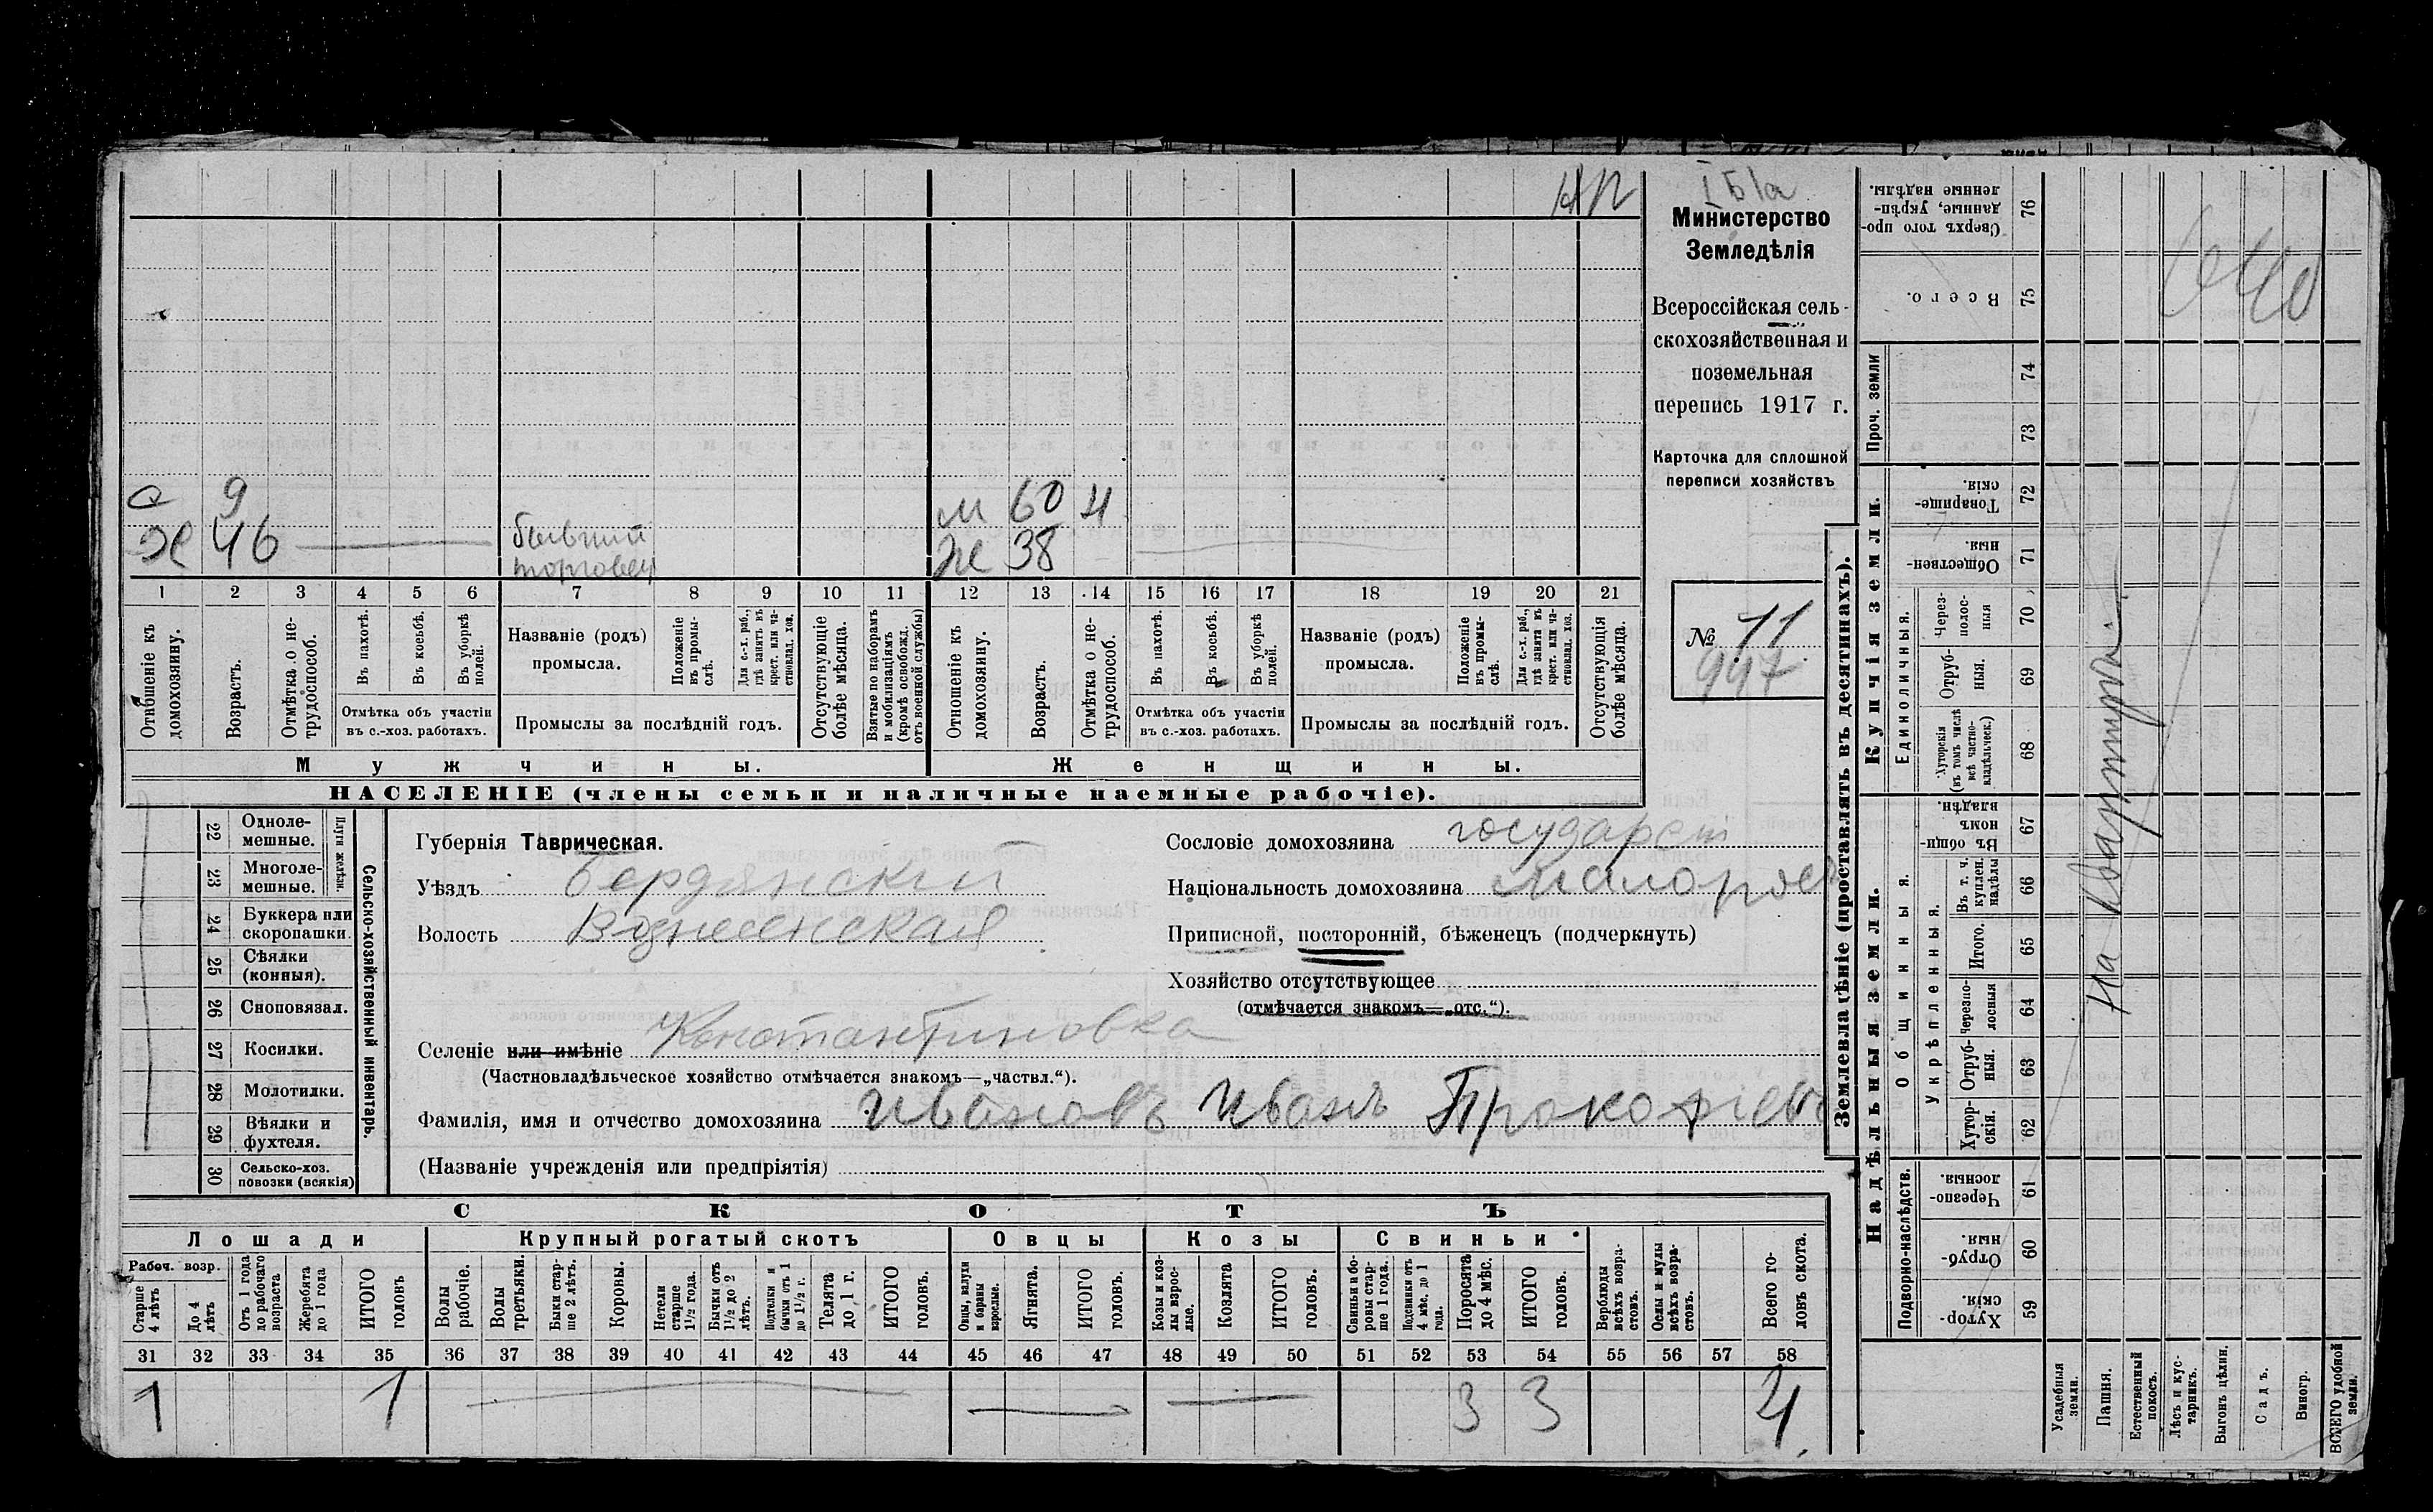 НП
I Б/а
Министерство
Земледѣлія
Всероссійская сель-
скохозяйственная и
поземельная
перепись 1917 г.
Карточка для сплошной
переписи хозяйствъ
№ 11
947
а 9
х 46 бывший
торговец
м 60 н
ж 38
1 2 3 4 5 6 7 8 9 10 11 12 13 14 15 16 17 18 19 20 21
Отношеніе къ домохозяину.
Возрастъ.
Отмѣтка о не-трудоспособ.
Въ пахотѣ.
Въ косьбѣ.
Въ уборкѣ полей.
Отмѣтка объ участіи
въ с.-хоз. работахъ.
Названіе (родъ)
промысла.
Положеніе въ промы-слѣ.
Для с.-х. раб., гдѣ занятъ въ крест. или ча-стновлад. хоз.
Промыслы за послѣдній годъ.
Отсутствующіе болѣе мѣсяца.
Взятые по наборамъ и мобилизаціямъ (кромѣ освобожд. отъ военной службы)
Отношеніе къ домохозяину.
Возрастъ.
Отмѣтка о не-трудоспособ.
Въ пахотѣ.
Въ косьбѣ.
Въ уборкѣ полей.
Отмѣтка объ участіи
въ с.-хоз. работахъ.
Названіе (родъ)
промысла.
Положеніе въ промы-слѣ.
Для с.-х. раб., гдѣ занята въ крест. или ча-стновлад. хоз.
Промыслы за послѣдній годъ.
Отсутствующія болѣе мѣсяца.
Мужчины. Женщины.
НАСЕЛЕНІЕ (члены семьи и наличные наемные рабочіе).
22 Одноле-мешные.
23 Многоле-мешные.
Плуги желѣзн.
24 Буккера или скоропашки.
25 Сѣялки (конныя).
26 Сноповязал.
27 Косилки.
28 Молотилки.
29 Вѣялки и фухтеля.
30 Сельско-хоз. повозки (всякія)
Сельско-хозяйственный инвентарь.
Губернія Таврическая.
Уѣздъ Бердянский
Волость Вознесенская
Сословіе домохозяина государст
Національность домохозяина малоросс
Приписной, посторонній, бѣженецъ (подчеркнуть)
Хозяйство отсутствующее
(отмѣчается знакомъ—„отс.“).
Селеніе или имѣніе Константиновка
(Частновладѣльческое хозяйство отмѣчается знакомъ—„частвл.“).
Фамилія, имя и отчество домохозяина Ивановъ Иванъ Прокофіевъ
(Названіе учрежденія или предпріятія)
СКОТЪ
Лошади Крупный рогатый скотъ Овцы Козы Свиньи
Рабоч. возр.
Старше 4 лѣтъ
До 4 лѣтъ
Отъ 1 года до рабочаго возраста
Жеребята до 1 года
ИТОГО головъ
Волы рабочіе.
Волы третьяки.
Быки стар-ше 2 лѣтъ.
Коровы.
Нетели старше 1½ года.
Бычки отъ 1½ до 2 лѣтъ.
Подтелки и бычки отъ 1 до 1½ г.
Телята до 1 г.
ИТОГО головъ.
Овцы, валухи и бараны взрослые.
Ягнята.
ИТОГО головъ.
Козы и коз-лы взрос-лые.
Козлята
ИТОГО головъ.
Свиньи и бо-ровы стар-ше 1 года.
Подсвинки отъ 4 мѣс. до 1 года.
Поросята до 4 мѣс.
ИТОГО головъ.
Верблюды всѣхъ возра-стовъ.
Ослы и мулы всѣхъ возра-стовъ.
Всего го-ловъ скота.
31 32 33 34 35 36 37 38 39 40 41 42 43 44 45 46 47 48 49 50 51 52 53 54 55 56 57 58
1 1 3 3 4
Землевладѣніе (проставлять въ десятинахъ).
Купчія земли.
Надѣльныя земли.
Сверхъ того про-данные, укрѣп-ленные надѣлы. 76
Всего. 75
Проч. земли 74
73
Товарище-скія. 72
Обществен-ныя. 71
Единоличныя.
Через-полос-ныя 70
Отруб-ныя. 69
Хуторскія (въ томъ числѣ всѣ частно-владѣльческ.) 68
Общинныя.
Въ общи-номъ владѣн. 67
Укрѣпленныя.
Въ т. ч. куплен. надѣлы 66
Итого. 65
Черезпо-лосныя 64
Отруб-ныя. 63
Хутор-скія. 62
Подворно-наслѣдств.
Черезпо-лосныя. 61
Отруб-ныя. 60
Хутор-скія. 59
Усадебныя земли.
Пашня.
Естественный покосъ.
Лѣсъ и кус-тарникъ.
Выгонъ цѣлин.
Садъ.
Виногр.
ВСЕГО удобной земли.
На квартире